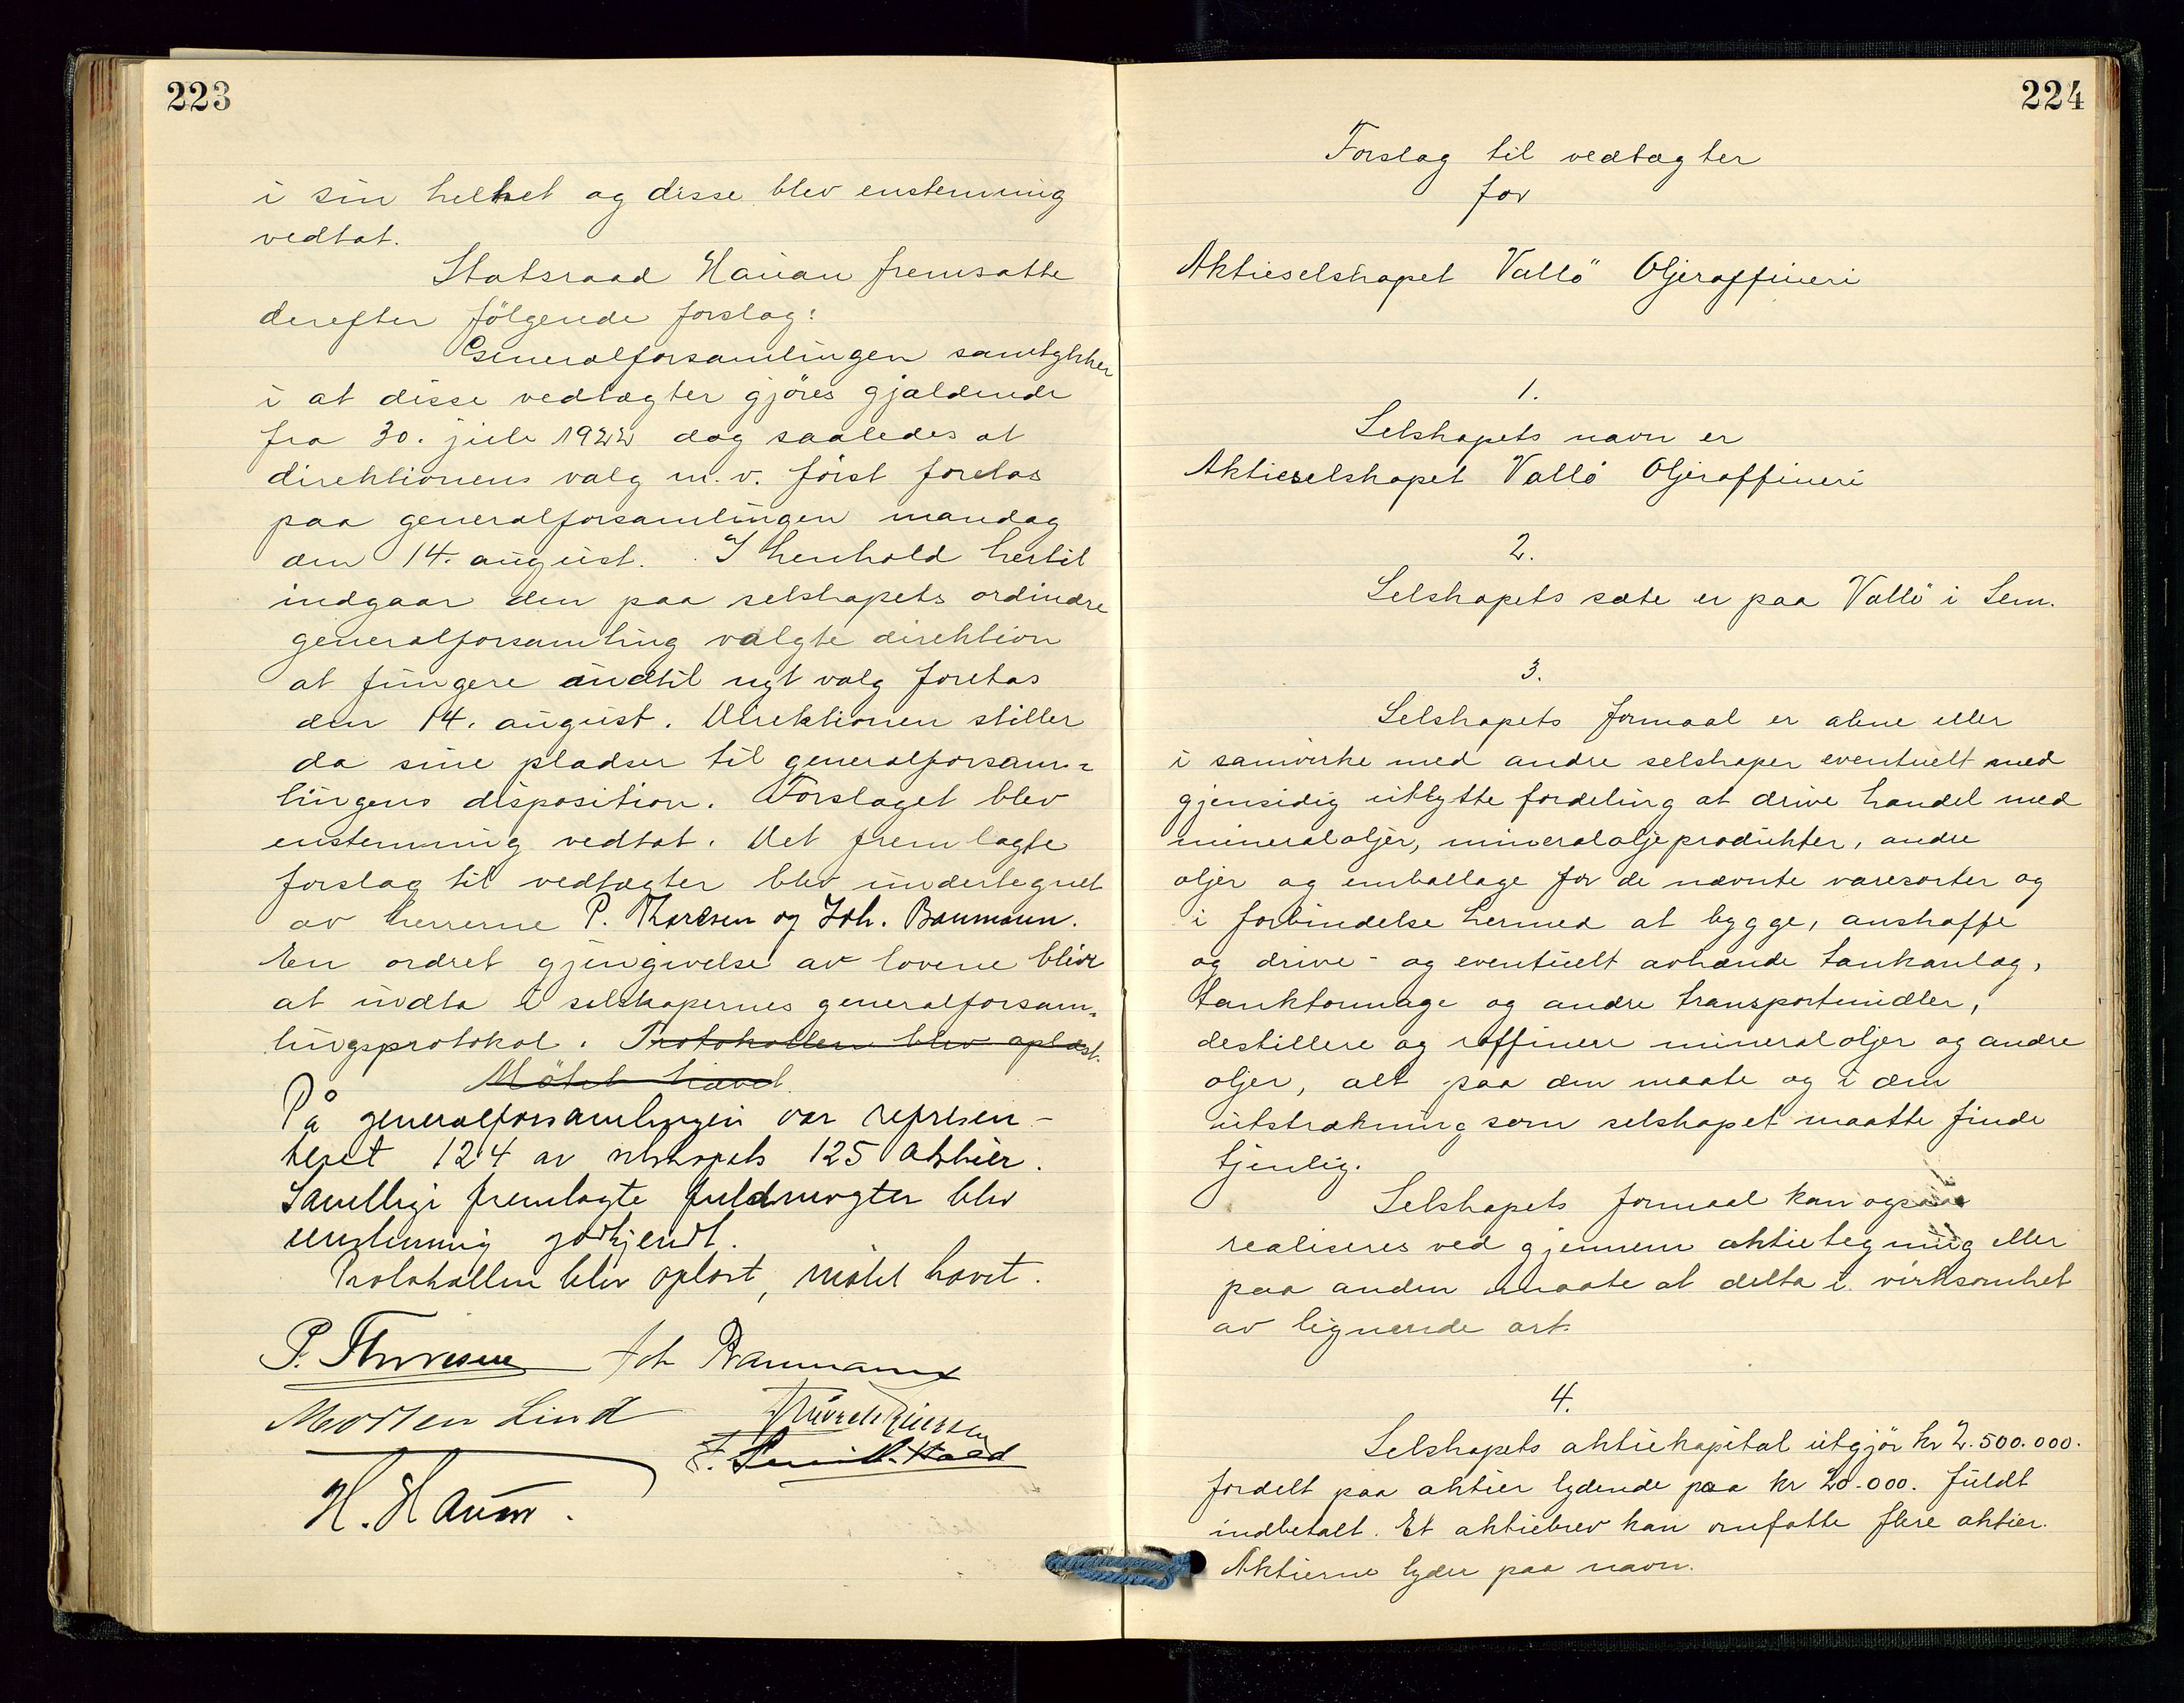 223
i sin helhet og disse blev enstemmig
vedtat.
Statsraad Hauan fremsatte
derefter fölgende forslag:
Generalforsamlingen samtykker
i at disse vedtægter gjöres gjældende
fra 30. juli 1922 dog saaledes at
direktionens valg m.v. först foretas
paa generalforsamlingen mandag
den 14. august. I henhold hertil
indgaar den paa selskapets ordinære
generalforsamling valgte direktion
at fungere indtil nyt valg foretas
den 14. august. Direktionen stiller
da sine pladser til generalforsam=
lingens disposition. Forslaget blev
enstemmig vedtat. Det fremlagte
forslag til vedtægter blev undertegnet
av herrerne P. Thoresen og Joh. Baumann.
En ordret gjengivelse av lovene blir
at indta i selskapernes generalforsam=
lingsprotokol. Protokollen blev oplæst.
Mötet hævet.
På generalforsamlingen var represen-
teret 124 av selskapets 125 aktier.
Samtlige fremlagte fuldmagter blev
enstemmig godkjendt.
Protokollen blev oplæst, mötet hævet.
P. Thoresen Joh Baumann
Morten Lind
F. Smith-Hald
H. Hauan.
224
Forslag til vedtægter
for
Aktieselskapet Vallö Oljeraffineri
1.
Selskapets navn er
Aktieselskapet Vallö Oljeraffineri
2.
Selskapets sæte er paa Vallö i Sem.
3.
Selskapets formaal er alene eller
i samvirke med andre selskaper eventuelt med
gjensidig utbyttefordeling at drive handel med
mineraloljer, mineraloljeprodukter, andre
oljer og emballage for de nævnte varesorter og
i forbindelse hermed at bygge, anskaffe
og drive - og eventuelt avhænde tankanlæg,
tanktonnage og andre transportmidler,
destillere og raffinere mineraloljer og andre
oljer, alt paa den maate og i den
utstrækning som selskapet maatte finde
tjenlig.
Selskapets formaal kan ogsaa
realiseres ved gjennem aktietegning eller
paa anden maate at delta i virksomhet
av lignende art.
4.
Selskapets aktiekapital utgjör kr 2.500.000.
fordelt paa aktier lydende paa kr 20.000. fuldt
indbetalt. Et aktiebrev kan omfatte flere aktier.
Aktierne lyder paa navn.